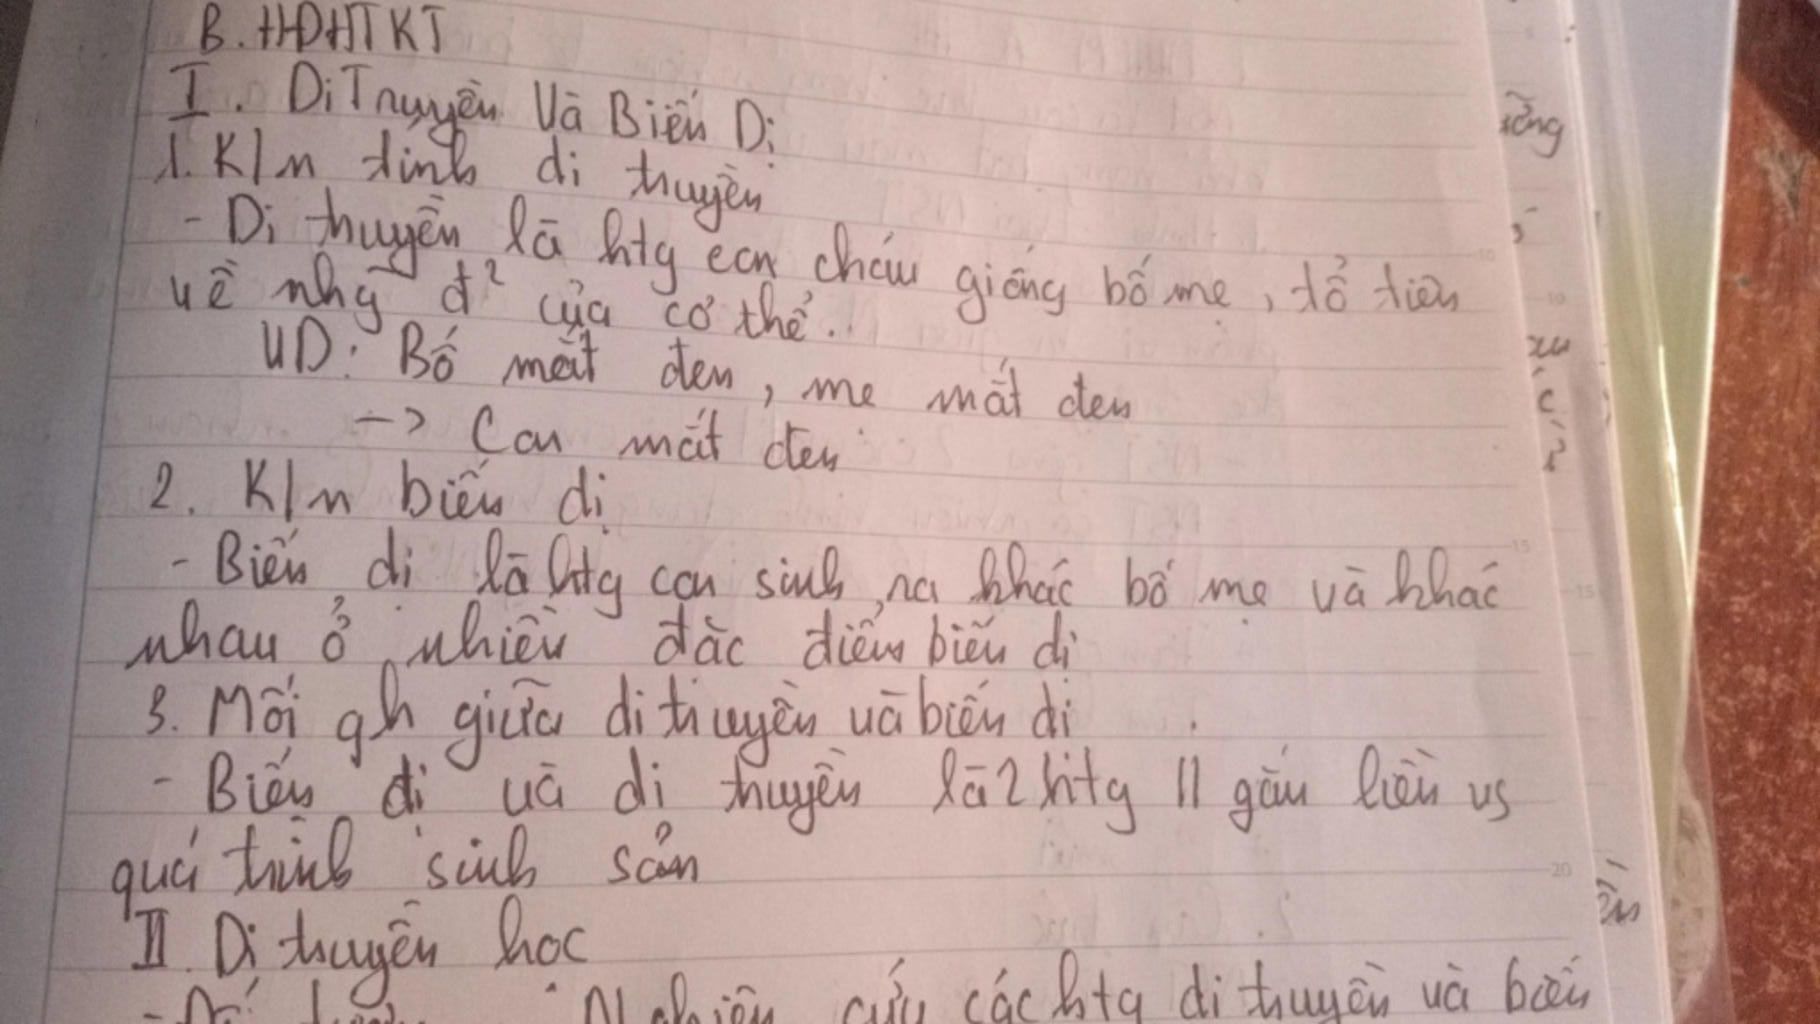 B. HĐHTKT
I. Di Truyền Và Biến Dị
1. K/n tính di truyền
- Di truyền là htg con cháu giống bố mẹ, tổ tiên
về nhg̃ đ² của cơ thể.
VD: Bố mắt đen, mẹ mắt đen
-> Con mắt đen
2. K/n biến dị
- Biến dị là htg con sinh ra khác bố mẹ và khác
nhau ở nhiều đặc điểm biến dị
3. Mối qh giữa di truyền và biến dị
- Biến dị và di truyền là 2 htg || gắn liền vs
quá trình sinh sản
II. Di truyền học
Nghiên cứu các htg di truyền và biến